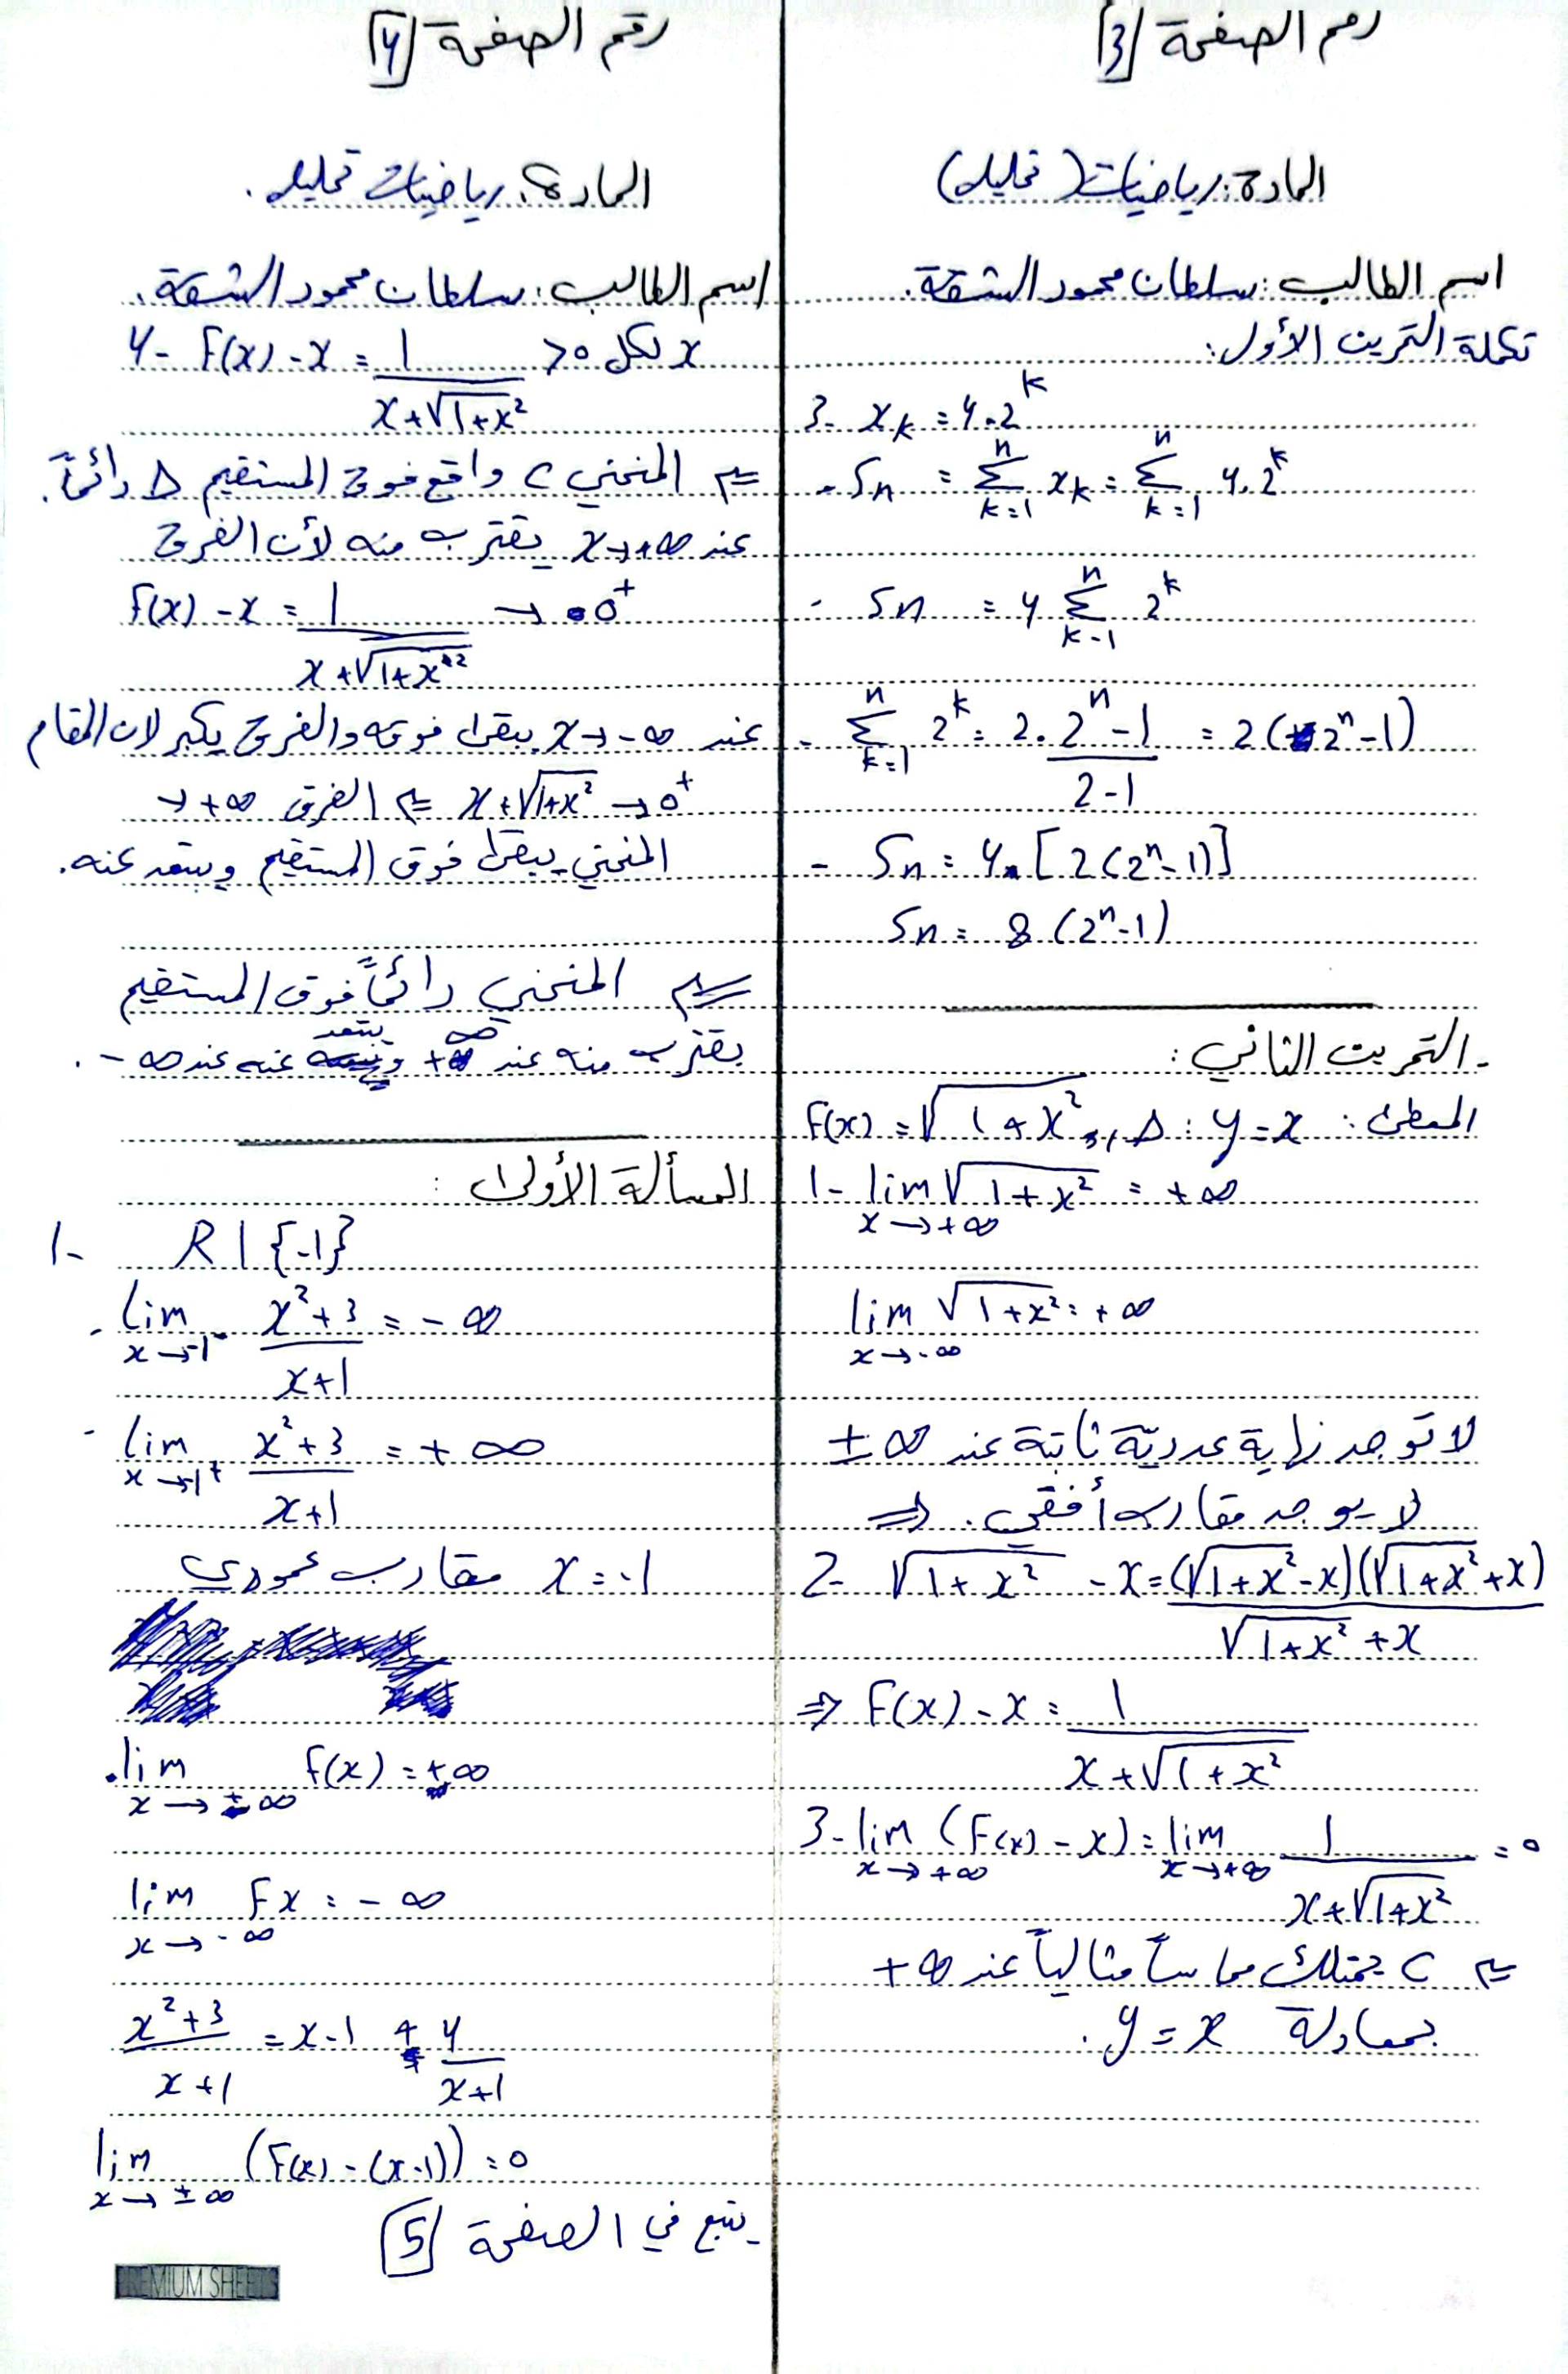 رقم الصفحة 3
المادة: رياضيات (تحليل)
اسم الطالب: سلطان محمود الشقة.
تكملة التمرين الأول:
3- x_k = 4·2^k
- Sn = Σ_{k=1}^{n} x_k = Σ_{k=1}^{n} 4·2^k
- Sn = 4 Σ_{k-1}^{n} 2^k
- Σ_{k=1}^{n} 2^k = 2·(2^n - 1)/(2-1) = 2(2^n - 1)
- Sn = 4·[2(2^n - 1)]
Sn = 8(2^n - 1)
- التمرين الثاني:
المعطى: F(x) = √(1+x²), Δ: y = x
1- lim_{x→+∞} √(1+x²) = +∞
lim_{x→-∞} √(1+x²) = +∞
لا توجد نهاية عدديّة ثابتة عند ±∞
لا يوجد مقارب أفقي. ⇒
2- √(1+x²) - x = (√(1+x²) - x)(√(1+x²) + x) / (√(1+x²) + x)
⇒ F(x) - x = 1/(x+√(1+x²))
3- lim_{x→+∞} (F(x) - x) = lim_{x→+∞} 1/(x+√(1+x²)) = 0
⇐ C يمتلك مماساً مثالياً عند +∞
بمعادلة y = x.
رقم الصفحة 4
المادة: رياضيات تحليل.
اسم الطالب: سلطان محمود الشقة.
4- F(x) - x = 1/(x+√(1+x²)) > 0 لكل x
⇐ المنحني C واقع فوق المستقيم Δ دائماً.
عند x→+∞ يقترب منه لأن الفرق
F(x) - x = 1/(x+√(1+x²)) → 0⁺
عند x→-∞ يبقى فوقه والفرق يكبر لان المقام
x+√(1+x²) → 0⁺ ⇐ الفرق → +∞
المنحني يبقى فوق المستقيم ويبتعد عنه.
⇐ المنحني دائماً فوق المستقيم
يقترب منه عند +∞ ويبتعد عنه عند -∞.
المسألة الأولى:
1- R | {-1}
- lim_{x→-1⁻} (x²+3)/(x+1) = -∞
- lim_{x→-1⁺} (x²+3)/(x+1) = +∞
x = -1 مقارب عمودي
. lim_{x→±∞} f(x) = +∞
lim_{x→-∞} Fx = -∞
(x²+3)/(x+1) = x-1 + 4/(x+1)
lim_{x→±∞} (F(x) - (x-1)) = 0
- يتبع في الصفحة 5
PREMIUM SHEETS